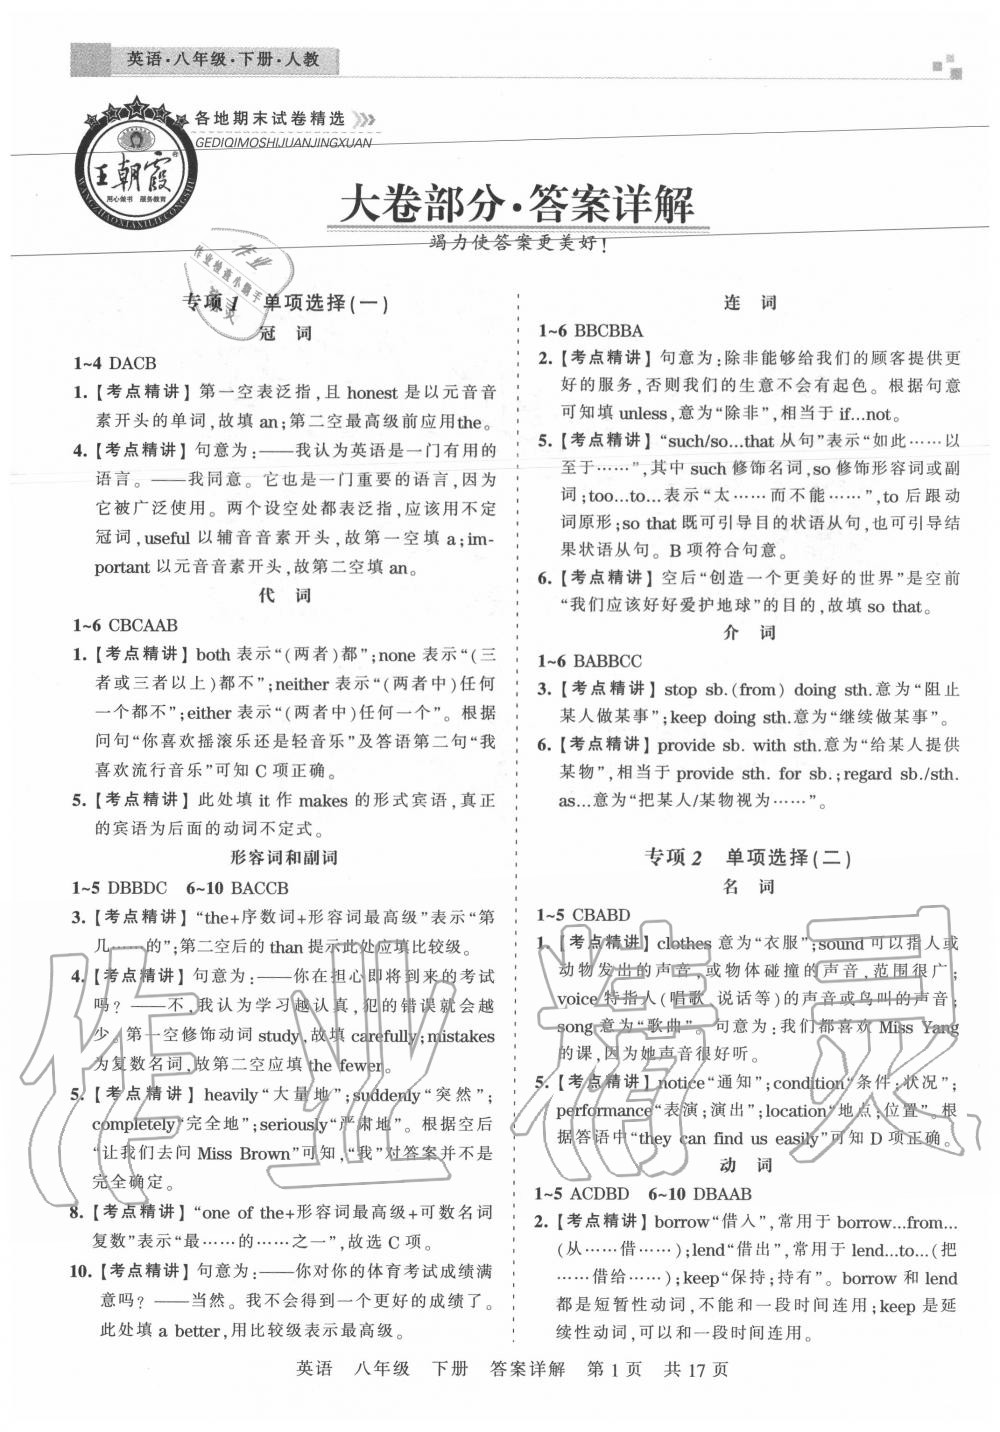 英语·八年级·下册·人教
各地期末试卷精选
GEDIQIMOSHIJUANJINGXUAN
王朝霞
用心做书 服务教育
WANGZHAOXIAXILIECONGSHU
大卷部分·答案详解
竭力使答案更美好!
专项1 单项选择(一)
冠 词
1~4 DACB
1.【考点精讲】第一空表泛指,且 honest 是以元音音
素开头的单词,故填 an;第二空最高级前应用the。
4.【考点精讲】句意为:——我认为英语是一门有用的
语言。——我同意。它也是一门重要的语言,因为
它被广泛使用。两个设空处都表泛指,应该用不定
冠词,useful 以辅音音素开头,故第一空填 a;im-
portant 以元音音素开头,故第二空填 an。
代 词
1~6 CBCAAB
1.【考点精讲】both 表示“(两者)都”;none 表示“(三
者或三者以上)都不”;neither 表示“(两者中)任何
一个都不”;either 表示“(两者中)任何一个”。根据
问句“你喜欢摇滚乐还是轻音乐”及答语第二句“我
喜欢流行音乐”可知 C 项正确。
5.【考点精讲】此处填 it 作 makes 的形式宾语,真正
的宾语为后面的动词不定式。
形容词和副词
1~5 DBBDC 6~10 BACCB
3.【考点精讲】“the+序数词+形容词最高级”表示“第
几……的”;第二空后的 than 提示此处应填比较级。
4.【考点精讲】句意为:——你在担心即将到来的考试
吗?——不,我认为学习越认真,犯的错误就会越
少。第一空修饰动词 study,故填 carefully;mistakes
为复数名词,故第二空应填 the fewer。
5.【考点精讲】heavily“大量地”;suddenly“突然”;
completely“完全地”;seriously“严肃地”。根据空后
“让我们去问 Miss Brown”可知,“我”对答案并不是
完全确定。
8.【考点精讲】“one of the+形容词最高级+可数名词
复数”表示“最……的……之一”,故选 C 项。
10.【考点精讲】句意为:——你对你的体育考试成绩满
意吗?——当然。我不会得到一个更好的成绩了。
此处填 a better,用比较级表示最高级。
连 词
1~6 BBCBBA
2.【考点精讲】句意为:除非能够给我们的顾客提供更
好的服务,否则我们的生意不会有起色。根据句意
可知填 unless,意为“除非”,相当于 if...not。
5.【考点精讲】“such/so...that 从句”表示“如此……以
至于……”,其中 such 修饰名词,so 修饰形容词或副
词;too...to...表示“太……而不能……”,to 后跟动
词原形;so that 既可引导目的状语从句,也可引导结
果状语从句。B 项符合句意。
6.【考点精讲】空后“创造一个更美好的世界”是空前
“我们应该好好爱护地球”的目的,故填 so that。
介 词
1~6 BABBCC
3.【考点精讲】stop sb.(from) doing sth.意为“阻止
某人做某事”;keep doing sth.意为“继续做某事”。
6.【考点精讲】provide sb. with sth.意为“给某人提供
某物”,相当于 provide sth. for sb.;regard sb./sth.
as...意为“把某人/某物视为……”。
专项2 单项选择(二)
名 词
1~5 CBABD
1.【考点精讲】clothes 意为“衣服”;sound 可以指人或
动物发出的声音,或物体碰撞的声音,范围很广;
voice 特指人(唱歌、说话等)的声音或鸟叫的声音;
song 意为“歌曲”。句意为:我们都喜欢 Miss Yang
的课,因为她声音很好听。
5.【考点精讲】notice“通知”;condition“条件;状况”;
performance“表演;演出”;location“地点;位置”。根
据答语中“they can find us easily”可知 D 项正确。
动 词
1~5 ACDBD 6~10 DBAAB
2.【考点精讲】borrow“借入”,常用于 borrow...from...
(从……借……);lend“借出”,常用于 lend...to...(把
……借给……);keep“保持;持有”。borrow 和 lend
都是短暂性动词,不能和一段时间连用;keep 是延
续性动词,可以和一段时间连用。
英语 八年级 下册 答案详解 第1页 共17页
作业精灵
作业
作业检查小助手
精灵